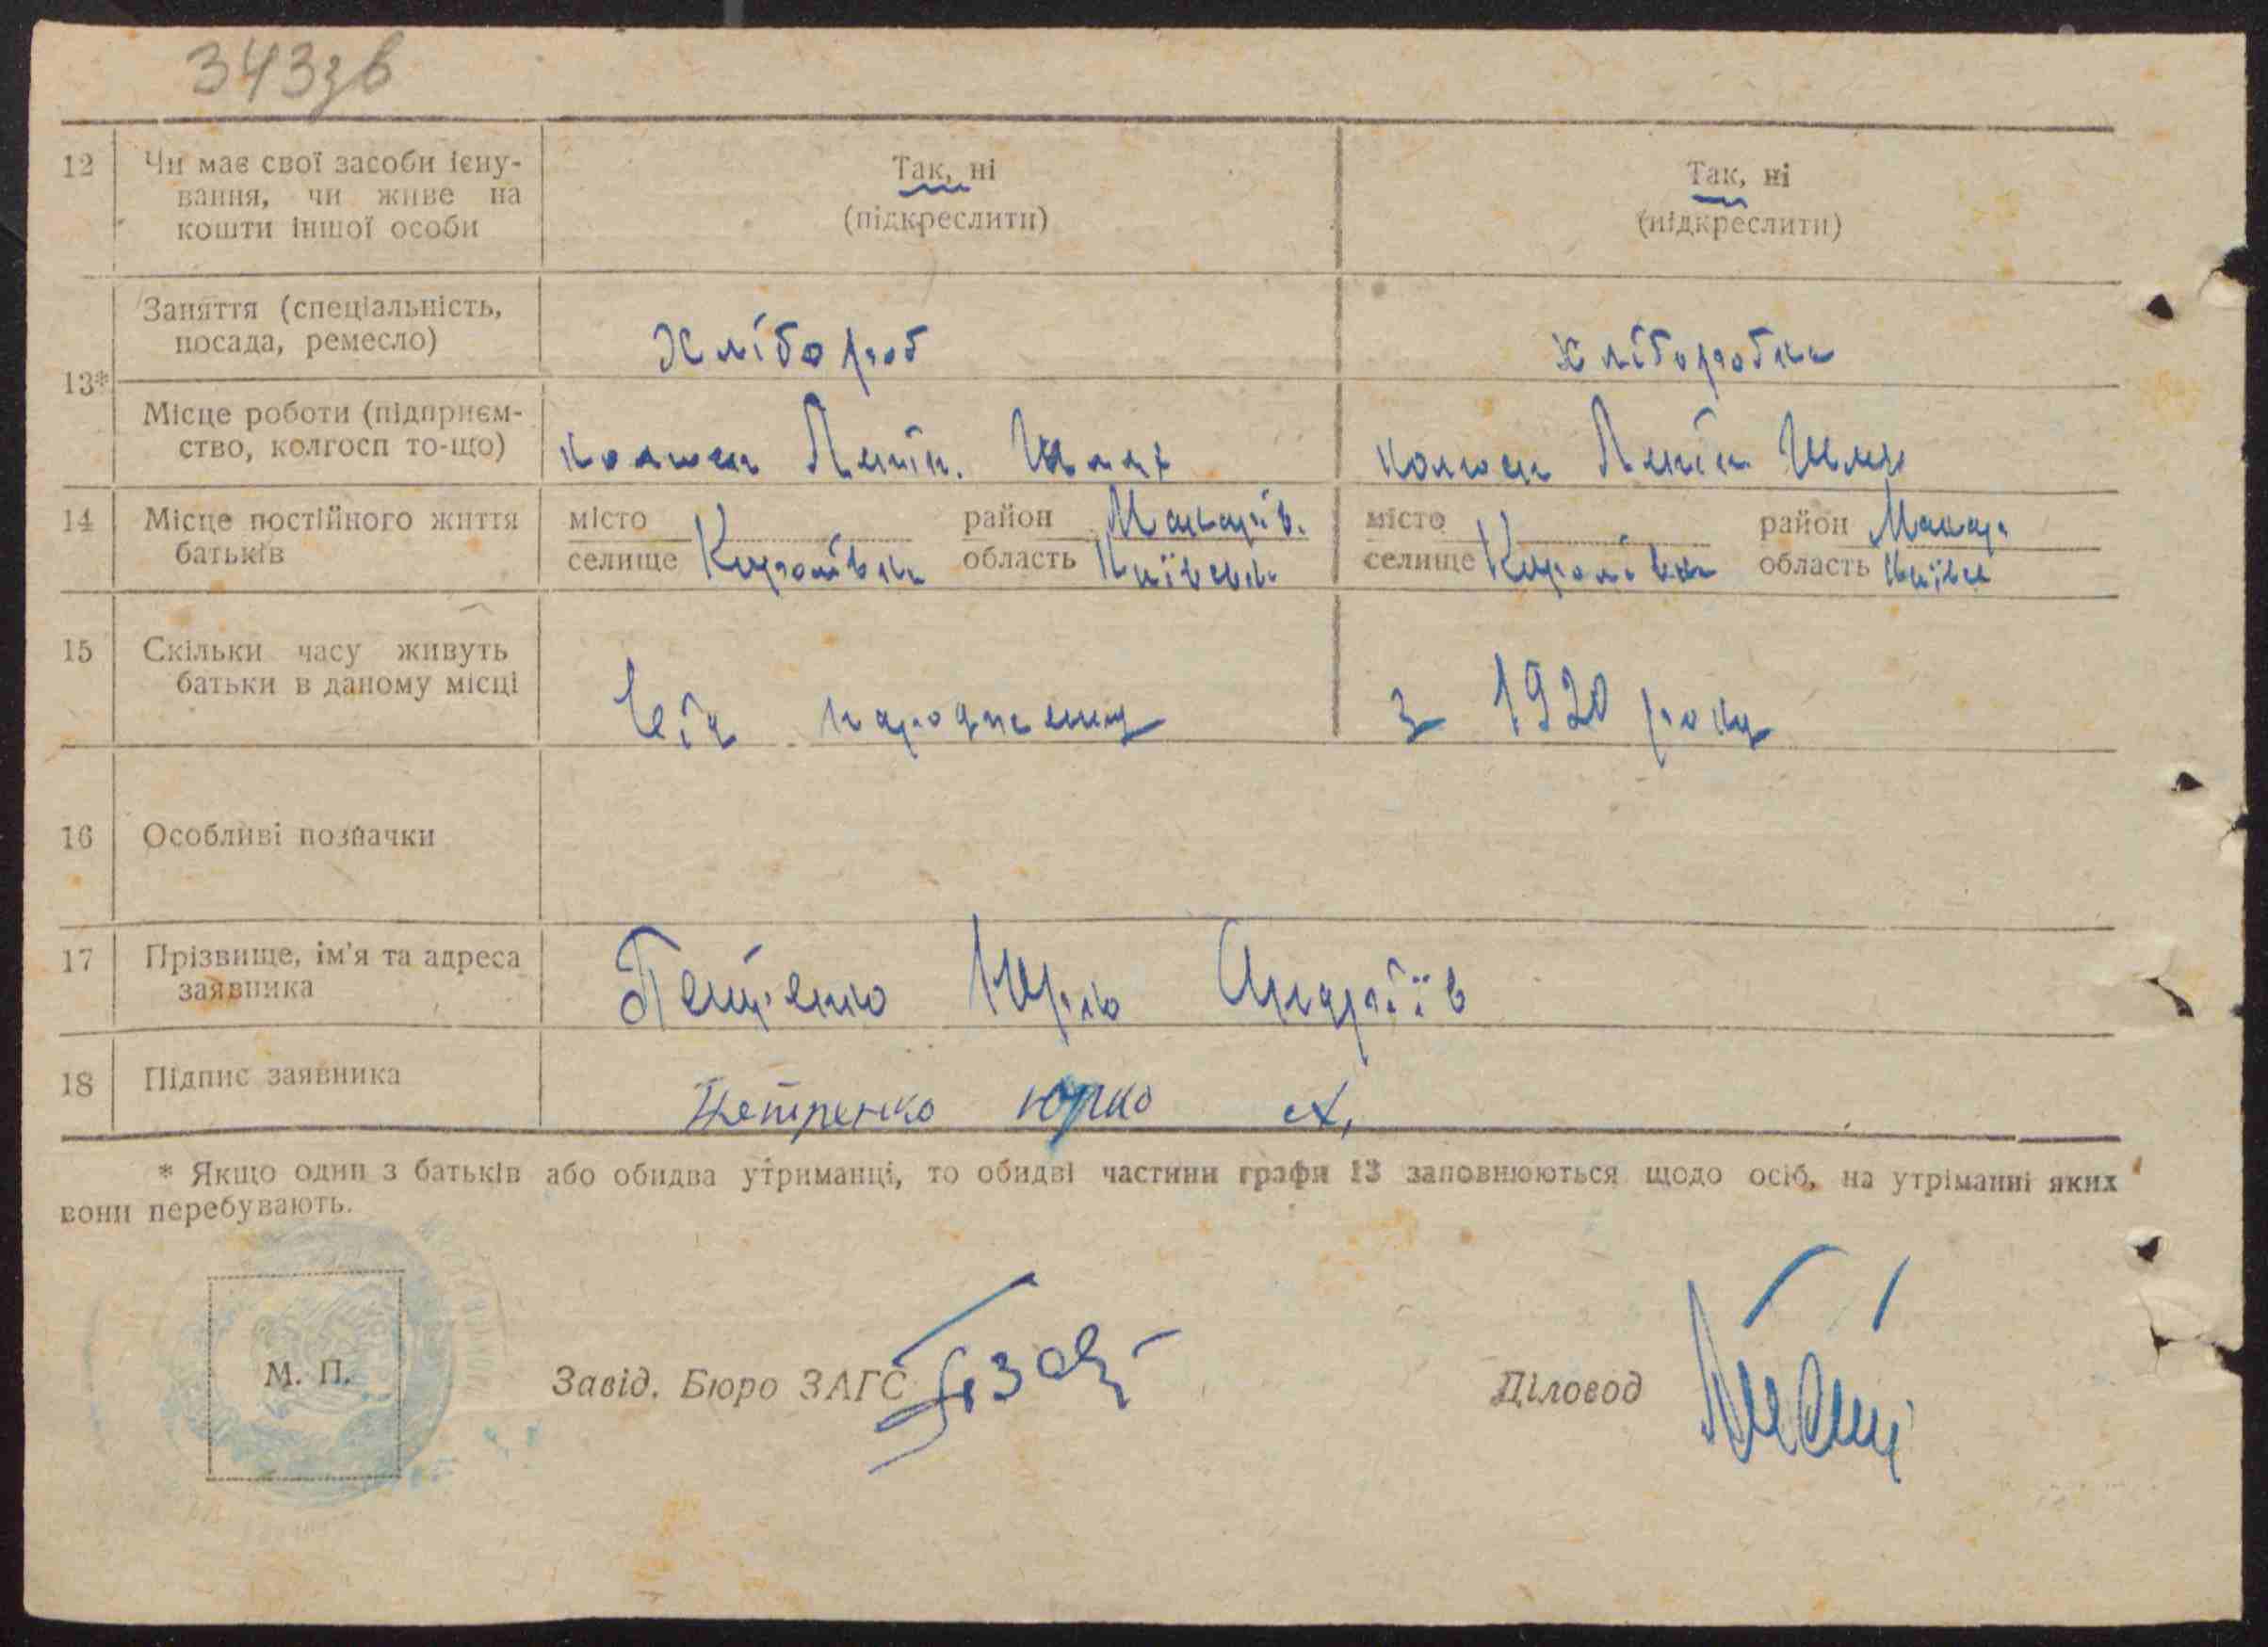 343зв
12 Чи має свої засоби існу- Так, ні Так, ні
вання, чи живе на (підкреслити) (підкреслити)
кошти іншої особи
13*
Заняття (спеціальність,
посада, ремесло) Хлібороб хліборобка
Місце роботи (підприєм-
ство, колгосп то-що) колгосп Ленін. Шлях колгосп Ленін Шлях
14 Місце постійного життя місто район Макарів. місто район Макар.
батьків селище Королівка область Київськ селище Королівка область Київськ
15 Скільки часу живуть
батьки в даному місці Від народження з 1920 року
16 Особливі позначки
17 Прізвище, ім'я та адреса Петренко Юрко Андріїв
заявника
18 Підпис заявника Петренко Юрко А.
* Якщо один з батьків або обидва утриманці, то обидві частини графи 13 заповнюються щодо осіб, на утріманні яких
вони перебувають.
М. П. Завід. Бюро ЗАГС Діловод